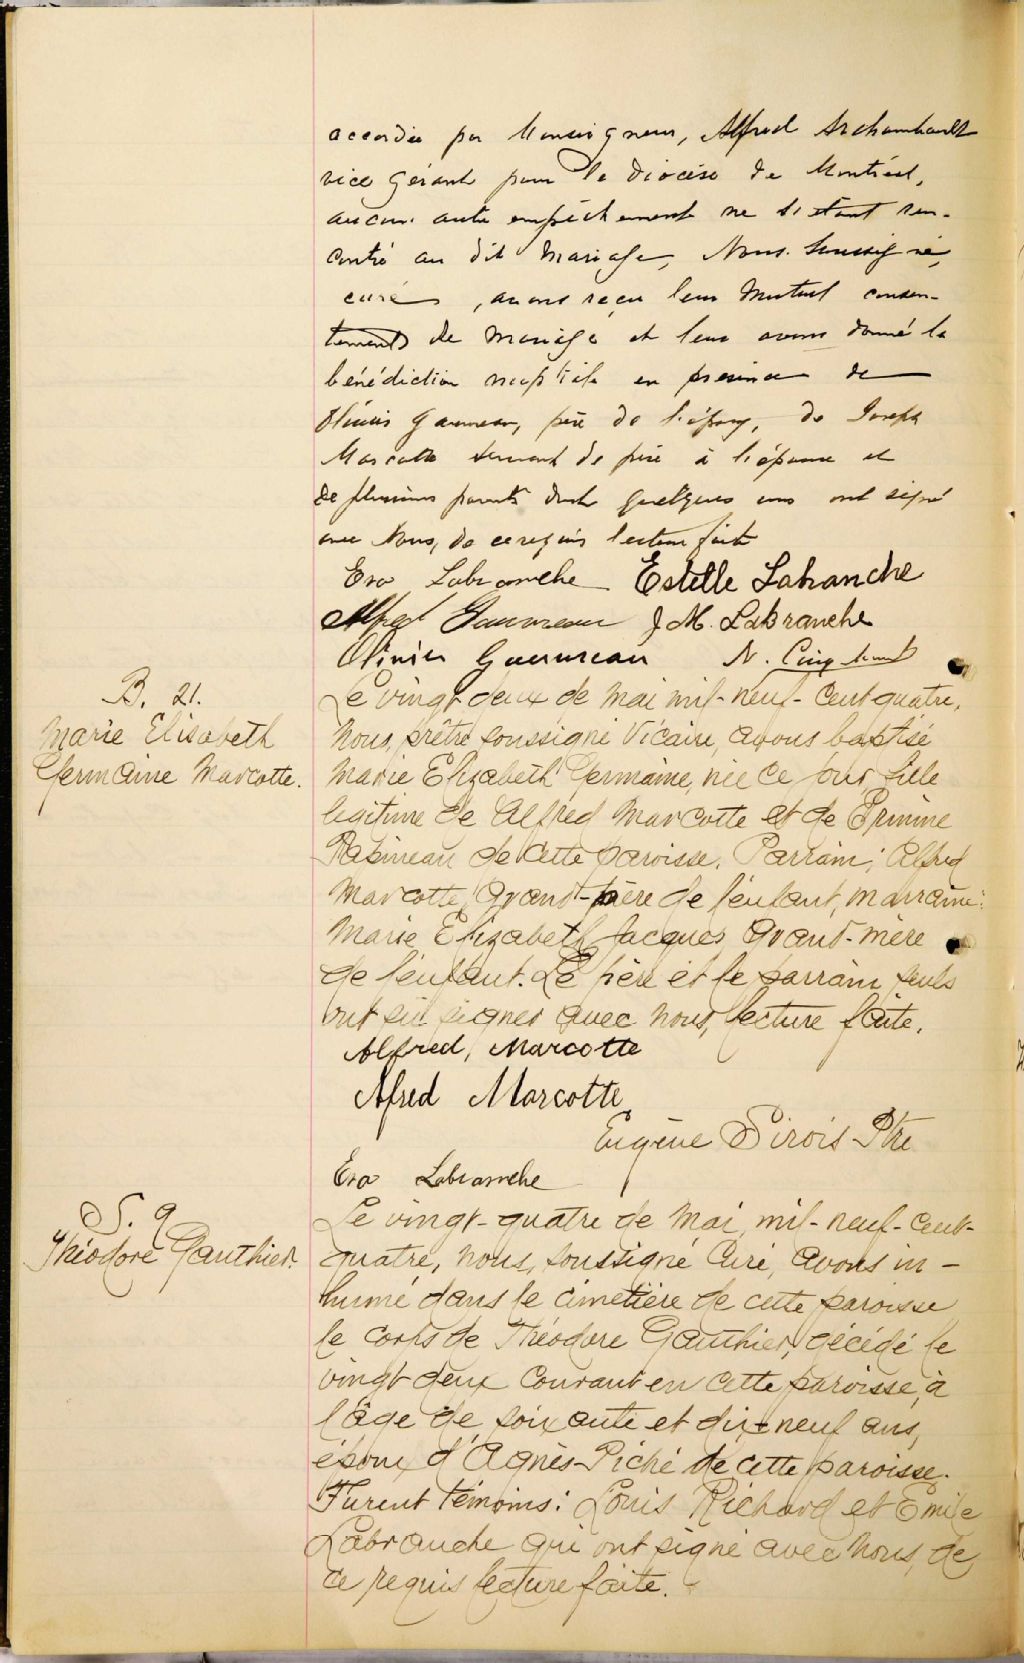 accordée par Monseigneur, Alfred Archambault
vice gérant pour le diocèse de Montréal,
aucun autre empêchement ne s'étant ren-
contré au dit mariage, Nous soussigné,
curé, avons reçu leur mutuel consen-
tement de mariage et leur avons donné la
bénédiction nuptiale en présence de
Olivier Gauvreau, père de l'époux, de Joseph
Marcotte servant de père à l'épouse et
de plusieurs parents dont quelques uns ont signé
avec Nous, de ce requis lecture faite
Eva Labranche Estelle Labranche
Alfred Gauvreau J M. Labranche
Olivier Gauvreau N.
B. 21.
Marie Elisabeth
Germaine Marcotte.
Le vingt-deux de mai mil-neuf-cent-quatre,
nous, prêtre soussigné Vicaire, avons baptisé
Marie Elizabeth Germaine, née ce jour, fille
légitime de Alfred Marcotte et de
de cette paroisse. Parrain: Alfred
Marcotte, grand-père de l'enfant, marraine:
Marie Elizabeth Jacques grand-mère
de l'enfant. Le père et le parrain seuls
ont su signer avec nous, lecture faite.
Alfred, Marcotte
Afred Marcotte
Eugène Sirois Ptre
Eva Labranche
S. 9
Théodore Gauthier.
Le vingt-quatre de mai, mil-neuf-cent-
quatre, nous, soussigné Curé, avons in-
humé dans le cimetière de cette paroisse
le corps de Théodore Gauthier, décédé le
vingt-deux courant en cette paroisse, à
l'âge de soixante et dix-neuf ans,
époux d'Agnès Piché de cette paroisse.
Furent témoins: Louis Richard et Emile
Labranche qui ont signé avec nous, de
ce requis lecture faite.